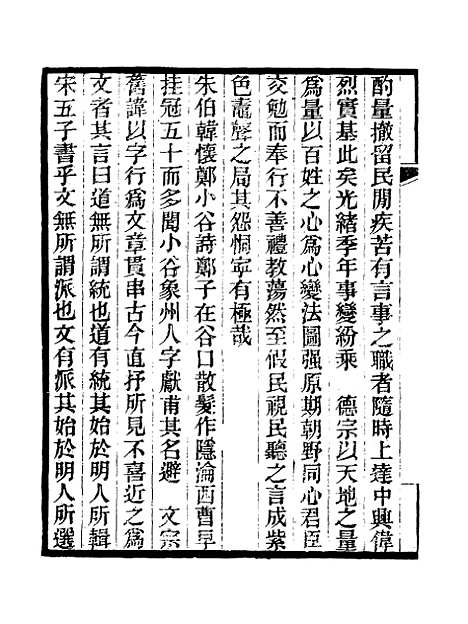 酌量撤留民閒疾苦有言事之職者隨時上達中興偉
烈實基此矣光緒季年事變紛乘　德宗以天地之量
爲量以百姓之心爲心變法圖强原期朝野同心君臣
交勉而奉行不善禮教蕩然至假民視民聽之言成紫
色鼃聲之局其怨恫寧有極哉
朱伯韓懷鄭小谷詩鄭子在谷口散髮作隱淪西曹早
挂冠五十而多聞小谷象州人字獻甫其名避　文宗
舊諱以字行爲文章貫串古今直抒所見不喜近之爲
文者其言曰道無所謂統也道有統其始於明人所輯
宋五子書乎文無所謂派也文有派其始於明人所選